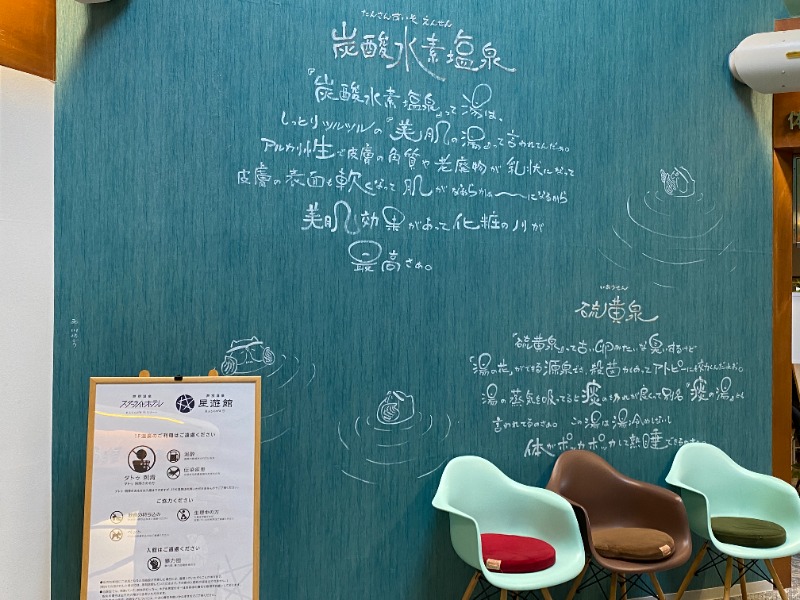 たんさんすいそ えんせん
炭酸水素塩泉
『炭酸水素塩泉』って湯は、
しっとりツルツルの『美肌の湯』って言われてんだぁ。
アルカリ性で皮膚の角質や老廃物が乳状になって
皮膚の表面も軟くなって肌がなめらかぁ〜になるから
美肌効果があって化粧のノリが
最高さぁ。
いおうせん
硫黄泉
『硫黄泉』って古い卵みたいな臭いするけど
『湯の花』ができる源泉でさ、殺菌力もあってアトピーにも効くんだよぉ。
湯の蒸気を吸ってると痰の切れが良くて別名『痰の湯』とも
言われてるのさぁ。この湯は湯冷めしないし
体がポッカポッカして熟睡できる
星遊館
下記の方のご利用はご遠慮ください
タトゥ 刺青
泥酔
伝染疾患
ご協力ください
生理中の方
入館はご遠慮ください
暴力団